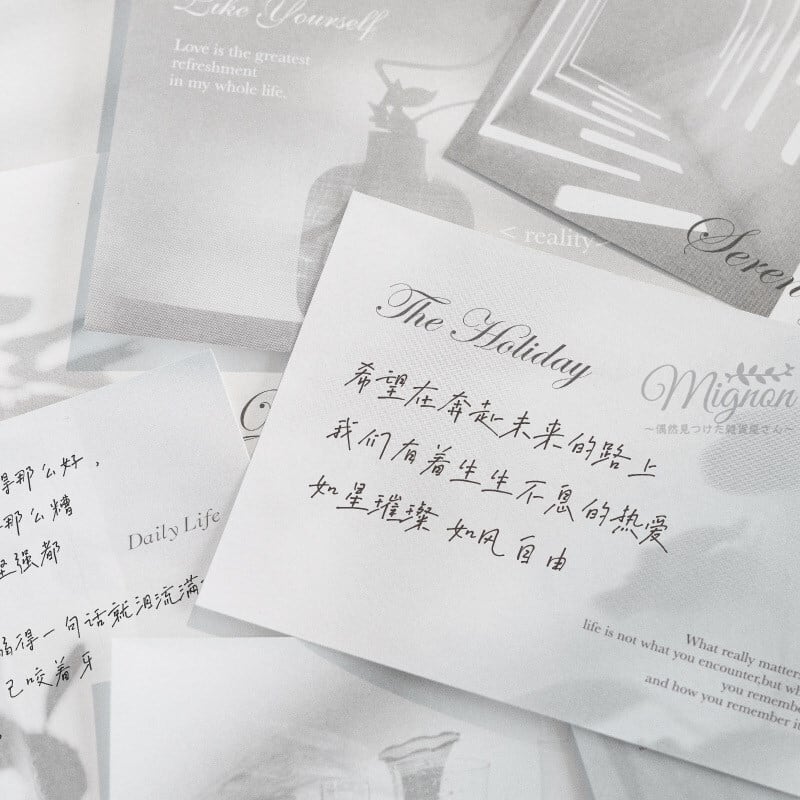 Like Yourself
Love is the greatest
refreshment
in my whole life.
< reality>
Seren
The Holiday
希望在奔赴未来的路上
我们有着生生不息的热爱
如星璀璨 如风自由
Mignon
~偶然見つけた雑貨屋さん~
What really matters
life is not what you encounter,but wh
you remember
and how you remember it
得那么好，
那么糟
坚强都
Daily Life
得一句话就泪流满
己咬着牙